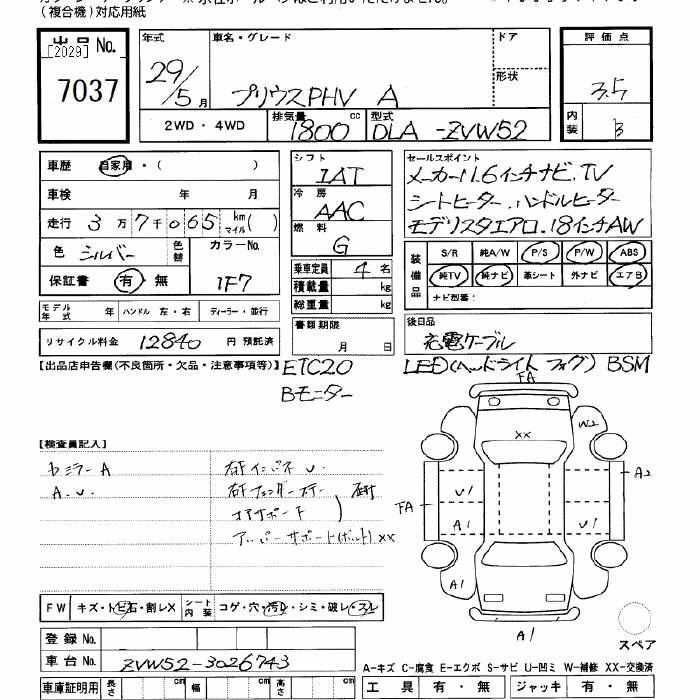 (複合機)対応用紙
出品No.
[2029]
7037
年式
29/5月
車名・グレード
プリウスPHV A
ドア
形状
評価点
3.5
内装
B
2WD・4WD
排気量
1800cc
型式
DLA-ZVW52
車歴 自家用・( )
車検 年 月
走行 3万7千065km マイル( )
色 シルバー
色替
カラーNo.
1F7
保証書 有・無
シフト
IAT
冷房
AAC
燃料
G
乗車定員 4名
積載量 kg
総重量 kg
セールスポイント
メーカー11.6インチナビ、TV
シートヒーター、ハンドルヒーター
モデリスタエアロ、18インチAW
装備品
S/R 純A/W P/S P/W ABS
純TV 純ナビ 革シート 外ナビ エアB
ナビ型番:
モデル年式 年 ハンドル 左・右 ディーラー・並行
リサイクル料金 12840円 預託済
書類期限
月 日
後日品
充電ケーブル
【出品店申告欄(不良箇所・欠品・注意事項等)】 ETC2.0 LED(ヘッドライト フォグ) BSM
Bモニター
【検査員記入】
セミラーA
A.U.
右インパネU.
右フェンダーステー
コアサポート
アッパーサポート(ボルト)XX
FA
XX
W2
A2
FA
U1
A1
U1
A1
A1
スペア
FW キズ・トビ石・割レX
シート内装 コゲ・穴・汚レ・シミ・破レ・スレ
登録No.
車台No. ZVW52-3026743
A-キズ C-腐食 E-エクボ S-サビ U-凹ミ W-補修 XX-交換済
車庫証明用 長さ cm 幅 cm 高さ cm
工具 有・無 ジャッキ 有・無